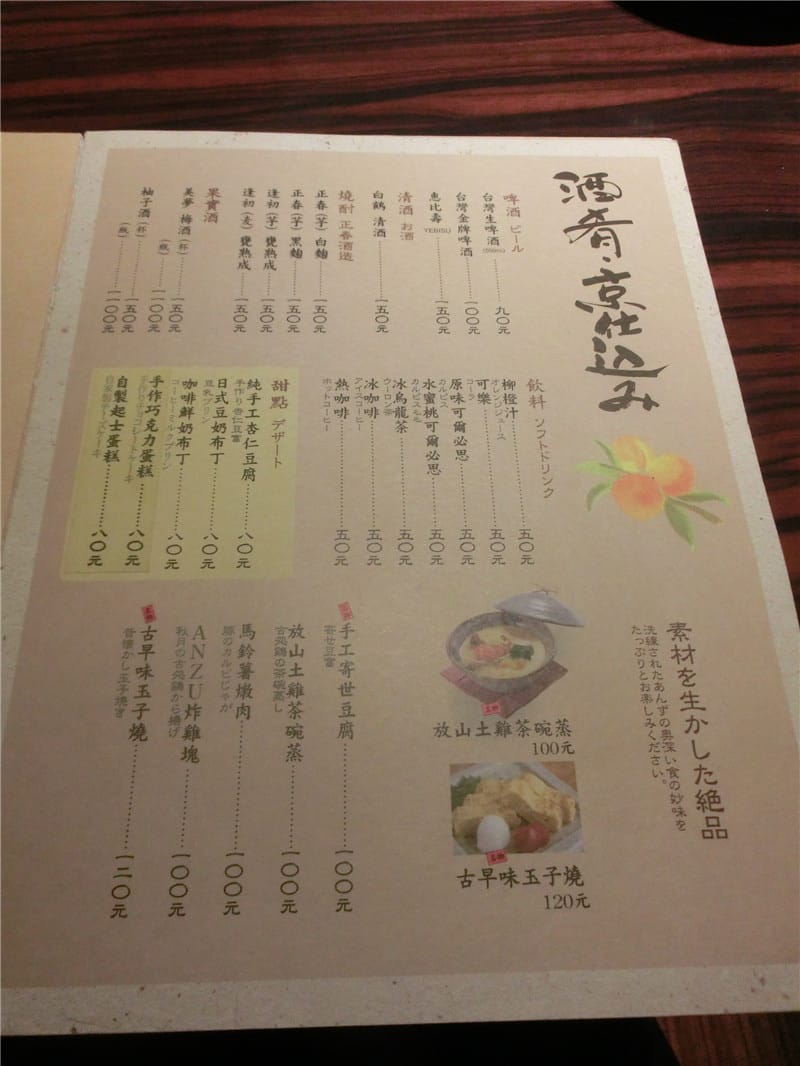 酒肴・京仕込み
啤酒 ビール
台灣生啤酒(500ml)……九〇元
台灣金牌啤酒……一〇〇元
惠比壽 YEBISU……一五〇元
清酒 お酒
白鶴 清酒……一五〇元
燒酎 正春酒造
正春(芋) 白麴……一五〇元
正春(芋) 黑麴……一五〇元
逢初(芋) 甕熟成……一五〇元
逢初(麦) 甕熟成……一五〇元
果實酒
美夢 梅酒(杯)……一五〇元
(瓶)……一〇〇〇元
柚子酒(杯)……一五〇元
(瓶)……一一〇〇元
飲料 ソフトドリンク
柳橙汁……五〇元
オレンジジュース
可樂……五〇元
コーラ
原味可爾必思……五〇元
カルピス
水蜜桃可爾必思……五〇元
カルピスモモ
冰烏龍茶……五〇元
ウーロン茶
冰咖啡……五〇元
アイスコーヒー
熱咖啡……五〇元
ホットコーヒー
甜點 デザート
純手工杏仁豆腐……八〇元
手作り杏仁豆富
日式豆奶布丁……八〇元
豆乳プリン
咖啡鮮奶布丁……八〇元
コーヒーミルクプリン
手作巧克力蛋糕……八〇元
手作りチョコレートケーキ
自製起士蛋糕……八〇元
自家製チーズケーキ
素材を生かした絶品
洗練されたあんずの奥深い食の妙味を
たっぷりとお楽しみください。
放山土雞茶碗蒸
100元
古早味玉子燒
120元
手工寄世豆腐……一〇〇元
寄せ豆富
放山土雞茶碗蒸……一〇〇元
古処鶏の茶碗蒸し
馬鈴薯燉肉……一〇〇元
豚のカルビじゃが
ANZU炸雞塊……一〇〇元
秋月の古処鶏から揚げ
古早味玉子燒……一二〇元
昔懐かし玉子焼き